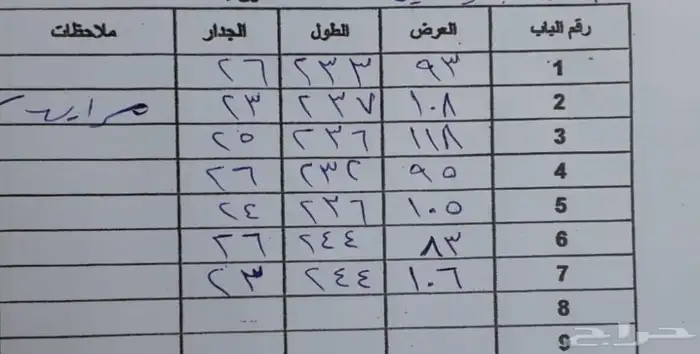 رقم الباب العرض الطول الجدار ملاحظات
1 ٩٣ ٢٣٣ ٢٦
2 ١٠٨ ٢٣٧ ٢٣
3 ١١٨ ٢٣٦ ٢٥
4 ٩٥ ٢٣٢ ٢٦
5 ١٠٥ ٢٣٦ ٢٤
6 ٨٣ ٢٤٤ ٢٦
7 ١٠٦ ٢٤٤ ٢٣
8
9
حراج